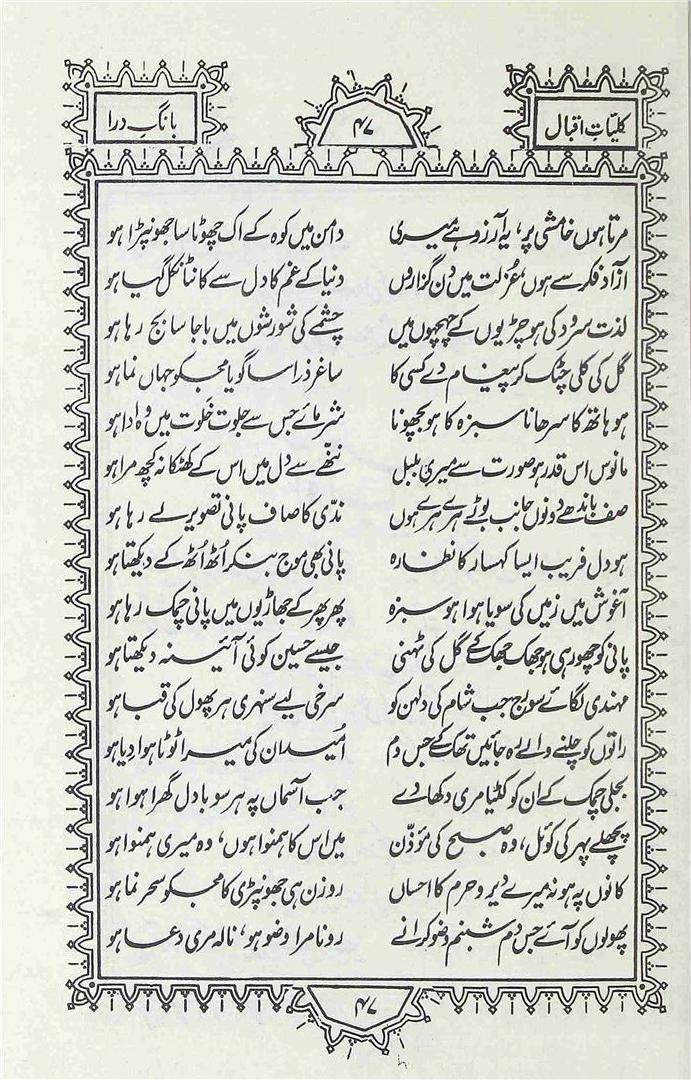 کلیاتِ اقبال
۴۷
بانگِ درا
مرتا ہوں خامشی پر، یہ آرزو ہے میری دامن میں کوہ کے اک چھوٹا سا جھونپڑا ہو
آزاد فکر سے ہوں، عزلت میں دن گزاروں دنیا کے غم کا دل سے کانٹا نکل گیا ہو
لذت سرود کی ہو چڑیوں کے چہچہوں میں چشمے کی شورشوں میں باجا سا بج رہا ہو
گل کی کلی چٹک کر پیغام دے کسی کا ساغر ذرا سا گویا مجھکو جہاں نما ہو
ہو ہاتھ کا سرھانا سبزہ کا ہو بچھونا شرمائے جس سے جلوت خلوت میں وہ ادا ہو
مانوس اس قدر ہو صورت سے میری بلبل ننھے سے دل میں اس کے کھٹکا نہ کچھ مرا ہو
صف باندھے دونوں جانب بوٹے ہرے ہرے ہوں ندّی کا صاف پانی تصویر لے رہا ہو
ہو دل فریب ایسا کہسار کا نظارہ پانی بھی موج بنکر اُٹھ اُٹھ کے دیکھتا ہو
آغوش میں زمیں کی سویا ہوا ہو سبزہ پھر پھر کے جھاڑیوں میں پانی چمک رہا ہو
پانی کو چھو رہی ہو جھک جھک کے گل کی ٹہنی جیسے حسین کوئی آئینہ دیکھتا ہو
مہندی لگائے سورج جب شام کی دلہن کو سرخی لیے سنہری ہر پھول کی قبا ہو
راتوں کو چلنے والے رہ جائیں تھک کے جس دم اُمید ان کی میرا ٹوٹا ہوا دیا ہو
بجلی چمک کے ان کو کٹیا مری دکھا دے جب آسماں پہ ہر سو بادل گھرا ہوا ہو
پچھلے پہر کی کوئل، وہ صبح کی مؤذّن میں اس کا ہمنوا ہوں، وہ میری ہمنوا ہو
کانوں پہ ہو نہ میرے دیر و حرم کا احساں روزن ہی جھونپڑی کا مجھکو سحر نما ہو
پھولوں کو آئے جس دم شبنم وضو کرانے رونا مرا وضو ہو، نالہ مری دعا ہو
۴۷